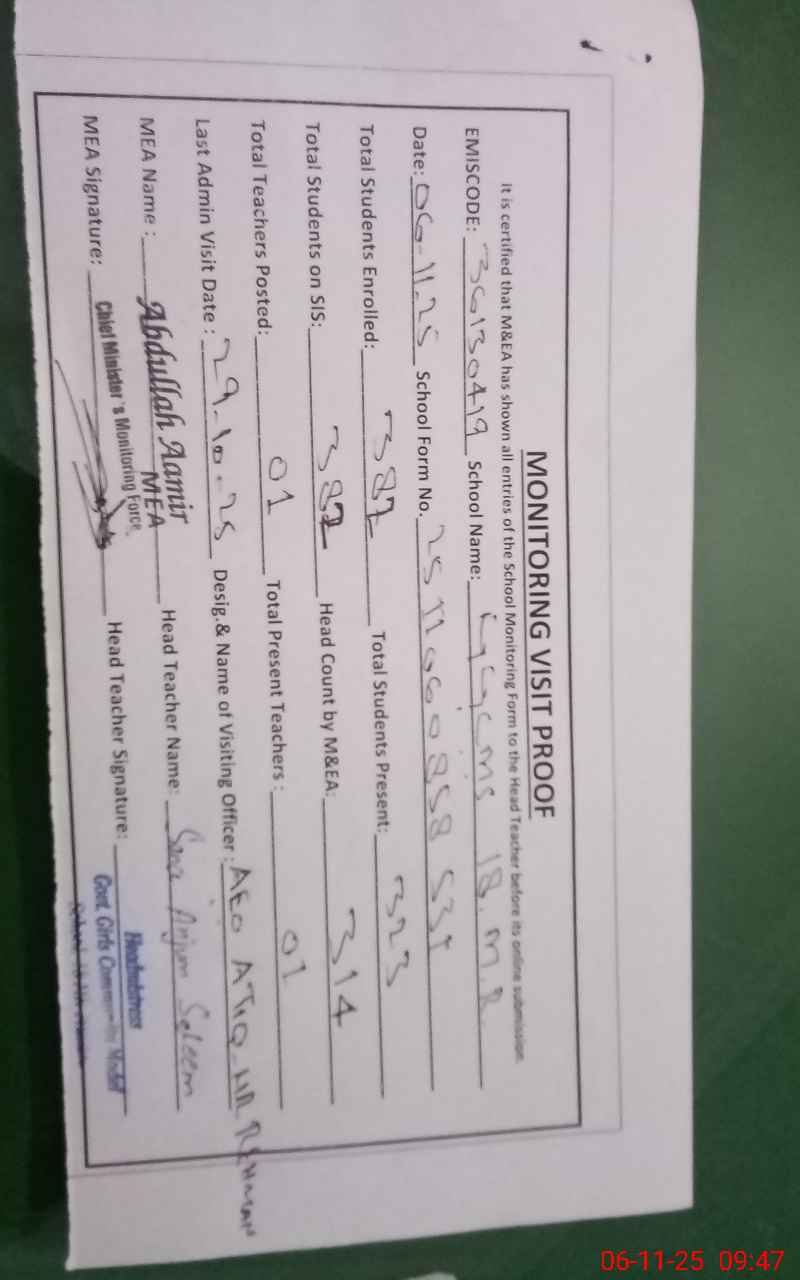 MONITORING VISIT PROOF
It is certified that M&EA has shown all entries of the School Monitoring Form to the Head Teacher before its online submission.
EMISCODE: 36130419 School Name: 18. M.R
Date: 06-11-25 School Form No. 2511060858
Total Students Enrolled: 387 Total Students Present: 323
Total Students on SIS: 382 Head Count by M&EA: 314
Total Teachers Posted: 01 Total Present Teachers: 01
Last Admin Visit Date: 29-10-25 Desig.& Name of Visiting Officer: AEO ATIQ-UR REHMAN
MEA Name: Abdullah Aamir Head Teacher Name: Sana Anjum Saleem
MEA
MEA Signature: Chief Minister's Monitoring Force Head Teacher Signature: Headmistress
Govt. Girls Community Model
06-11-25 09:47